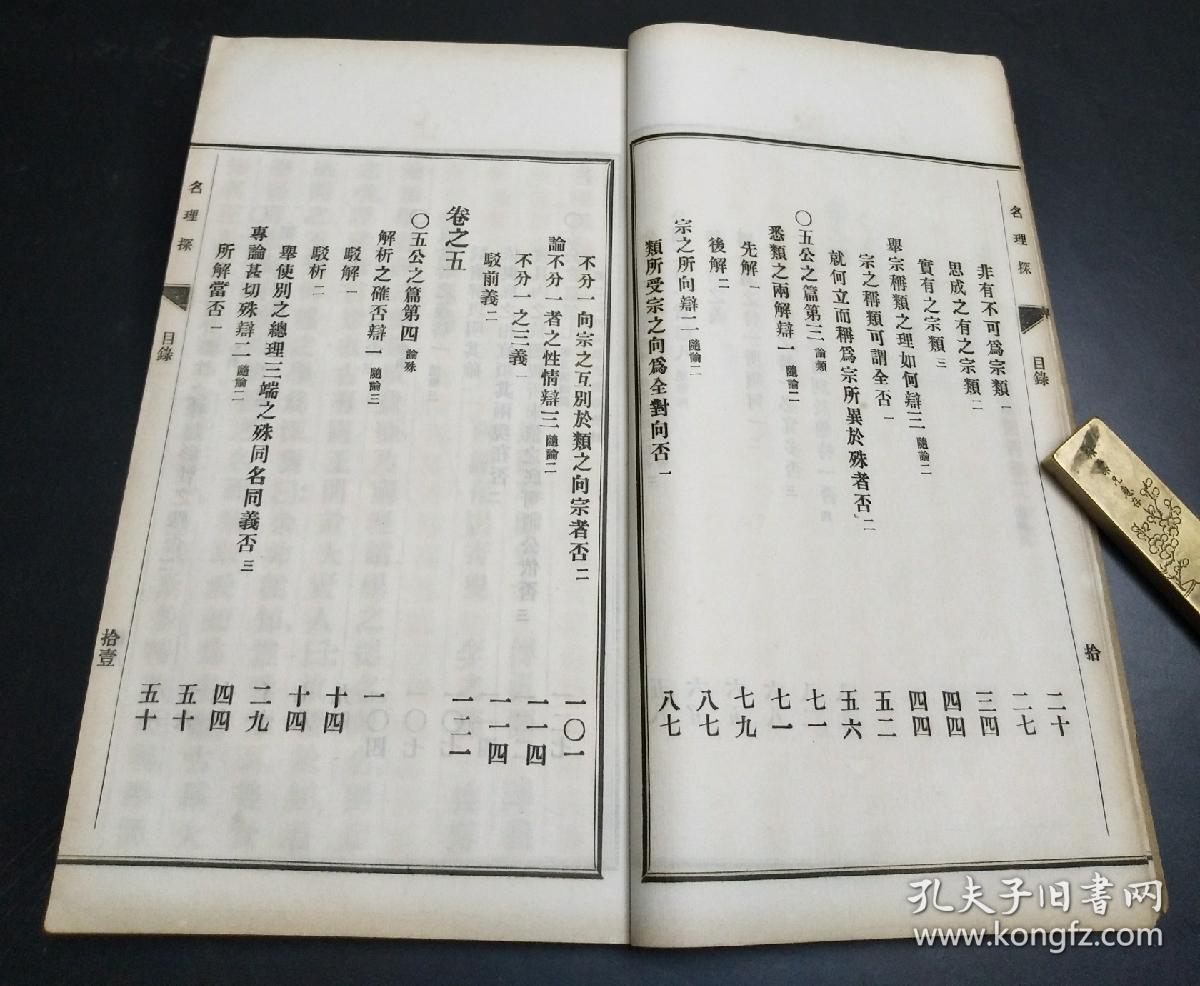 名理探
目錄
拾
非有不可爲宗類 一 二十
思成之有之宗類 二 二七
實有之宗類 三 三四
舉宗稱類之理如何辯三 隨論二 四四
宗之稱類可謂全否 一 四四
就何立而稱爲宗所異於殊者否 二 五二
〇五公之篇第三 論類 五六
悉類之兩解辯一 隨論二 七一
先解 一 七一
後解 二 七九
宗之所向辯二 隨論二 八七
類所受宗之向爲全對向否 一 八七
不分一向宗之互別於類之向宗者否 二 一〇一
論不分一者之性情辯三 隨論二 一一四
不分一之三義 一 一一四
駁前義 二 一二一
卷之五
〇五公之篇第四 論殊 一
解析之確否辯一 隨論三 十四
駁解 一 十四
駁析 二 二九
舉使別之總理三端之殊同名同義否 三 四四
專論甚切殊辯二 隨論二 五十
所解當否 一 五十
名理探
目錄
拾壹
孔夫子旧书网
www.kongfz.com